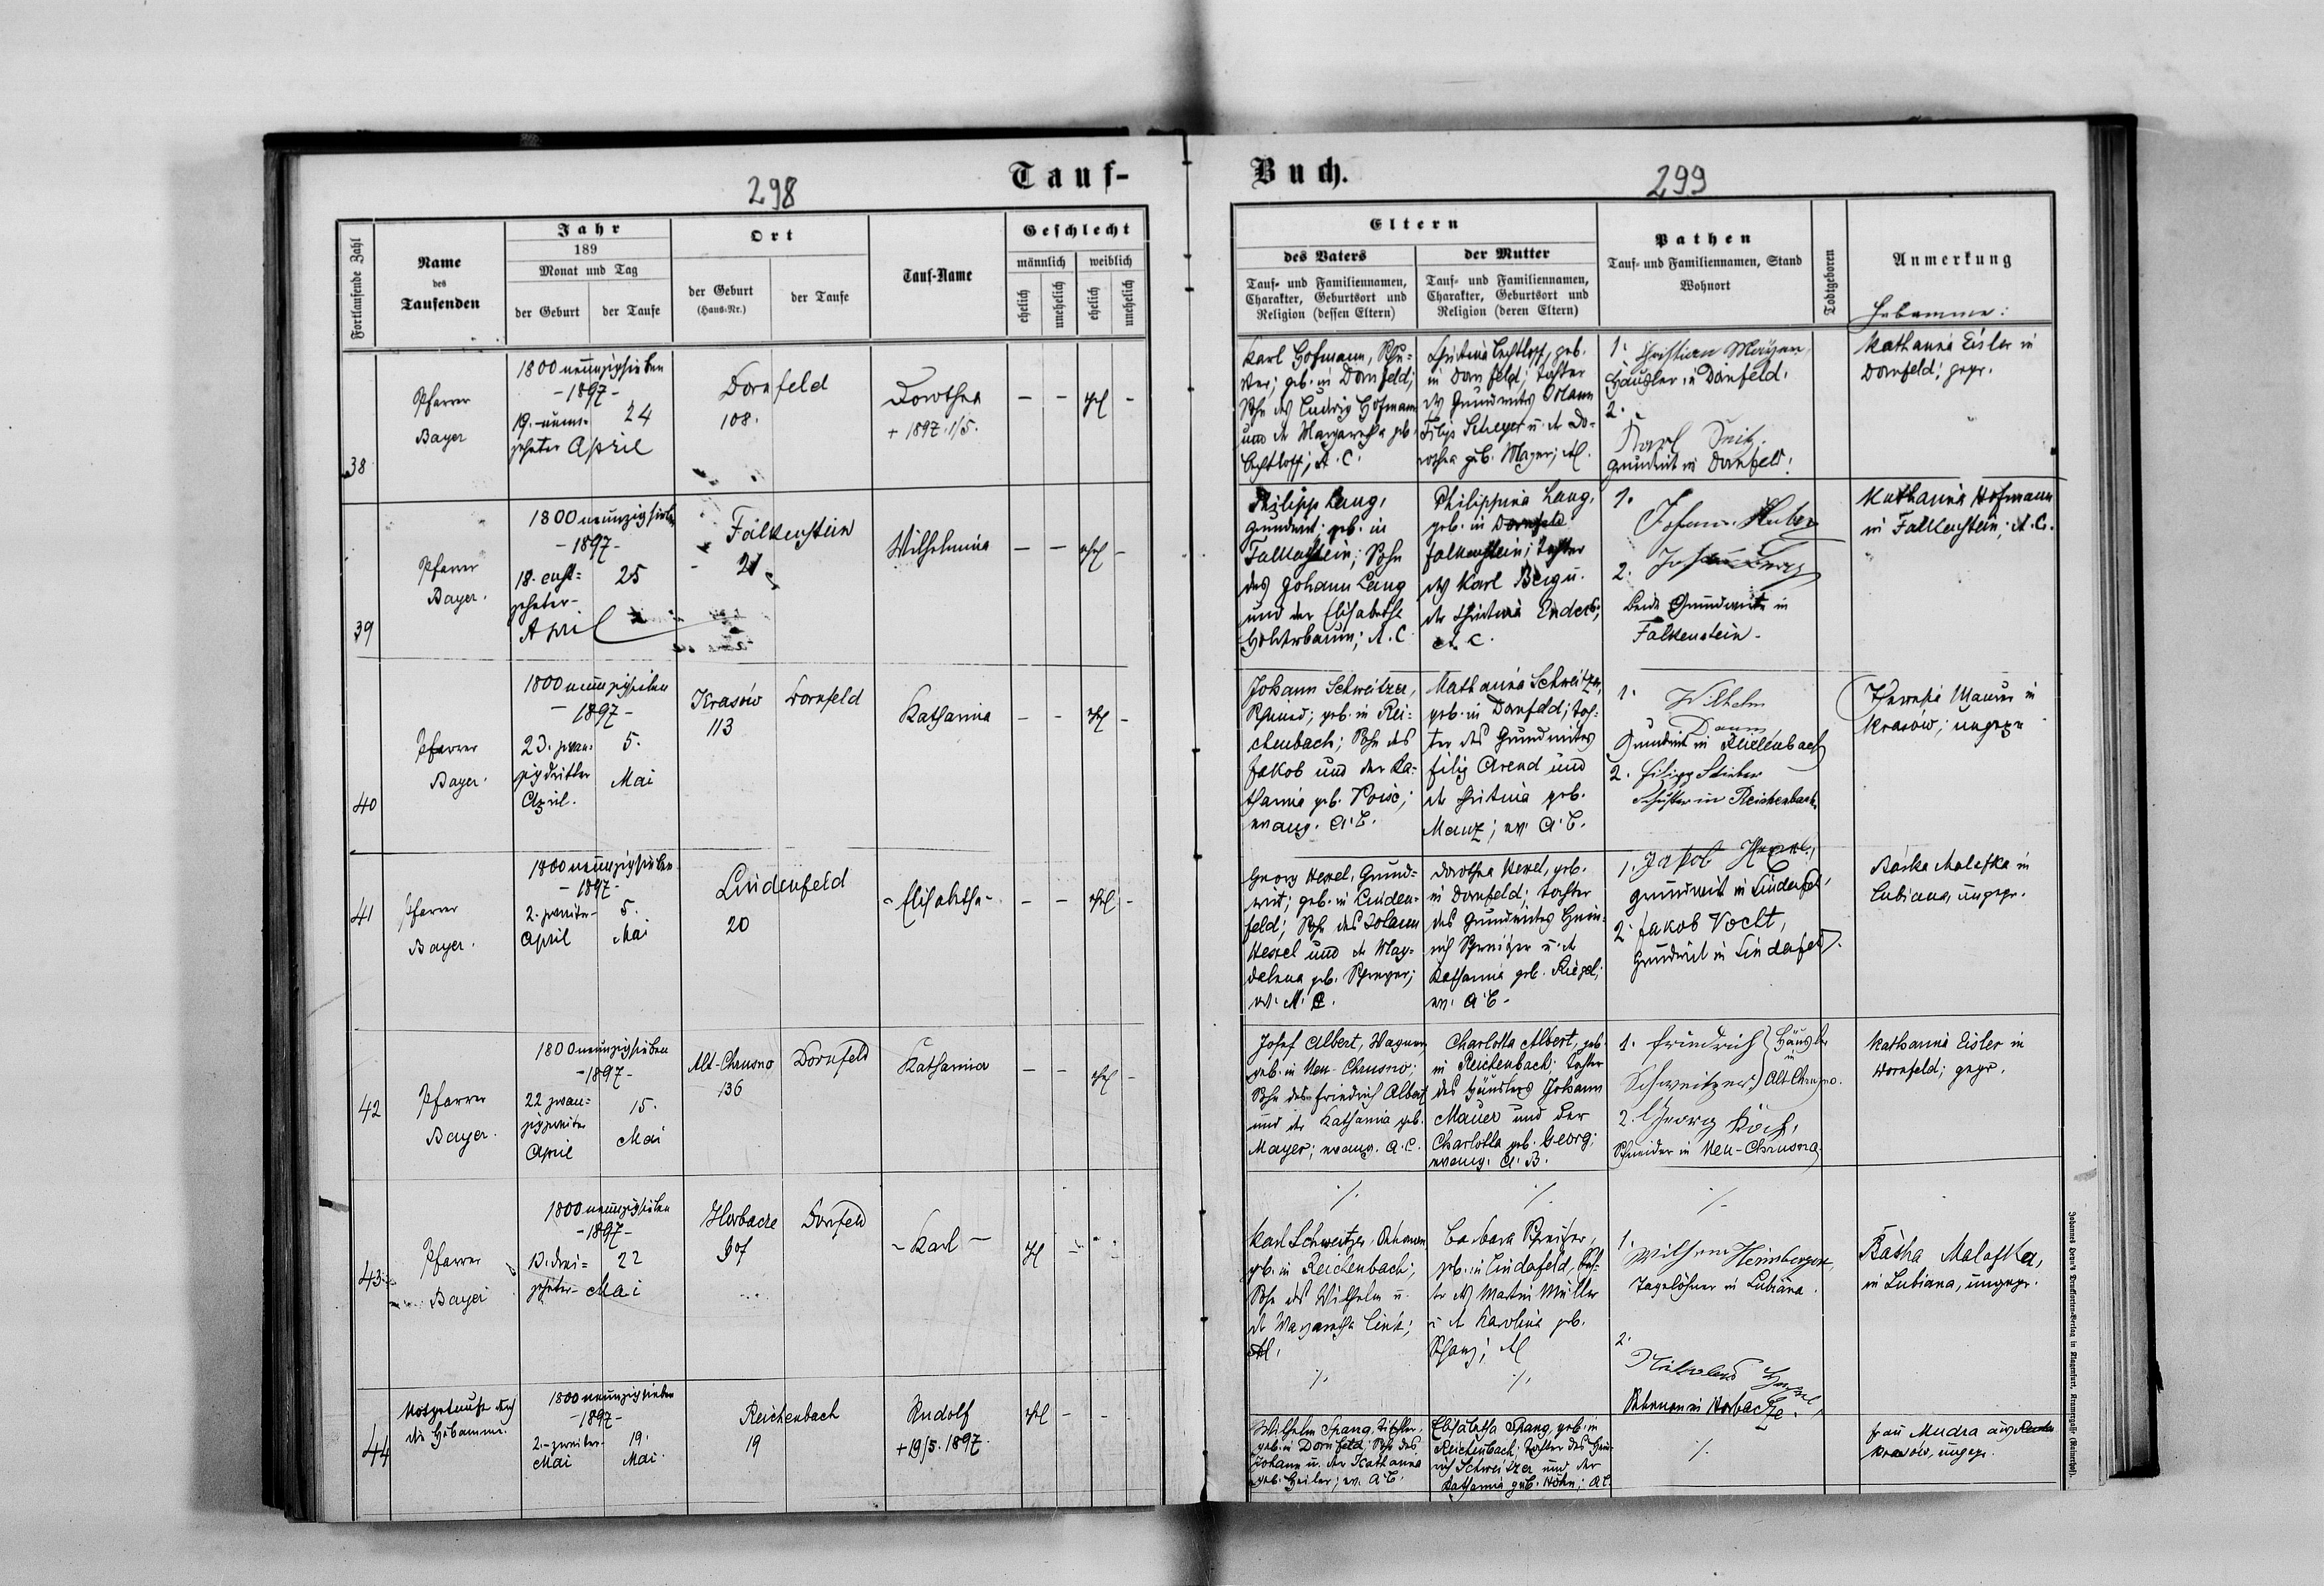 298
Tauf-
Fortlaufende Zahl
Name
des
Taufenden
Jahr
189
Monat und Tag
der Geburt
der Taufe
Ort
der Geburt
(Haus-Nr.)
der Taufe
Tauf-Name
Geschlecht
männlich
weiblich
ehelich
unehelich
ehelich
unehelich
38
Pfarrer
Bayer
1800 neunzigsieben
- 1897 -
19. neun-
zehnter April
24
Dornfeld
108.
Dorothea
+ 1897. 1/5.
39
Pfarrer
Bayer.
1800 neunzigsieben
- 1897 -
18. acht=
zehnter-
April
25
Falkenstein
21
Wilhelmina
40
Pfarrer
Bayer.
1800 neunzigsieben
- 1897 -
23. zwan-
zigdritter
April.
5.
Mai
Krasów
113
Dornfeld
Katharina
41
Pfarrer
Bayer.
1800 neunzigsieben
- 1897 -
2. zweiter
April
5.
Mai
Lindenfeld
20
- Elisabetha -
42
Pfarrer
Bayer.
1800 neunzigsieben
- 1897 -
22 zwan=
zigzweiter
April
15.
Mai
Alt-Chrusno
136
Dornfeld
Katharina
43
Pfarrer
Bayer
1800 neunzigsieben
- 1897 -
13. drei=
zehnter Mai
22
Horbacze
Hof
Dornfeld
- Karl -
44
Notgetauft durch
die Hebamme.
1800 neunzigsieben
- 1897 -
2. zweiter
Mai
19.
Mai.
Reichenbach
19
Rudolf
+ 19/5. 1897.
Buch.
299
Eltern
des Vaters
Tauf- und Familiennamen,
Charakter, Geburtsort und
Religion (dessen Eltern)
der Mutter
Tauf- und Familiennamen,
Charakter, Geburtsort und
Religion (deren Eltern)
Pathen
Tauf- und Familiennamen, Stand
Wohnort
Todtgeboren
Anmerkung
Hebamme:
Karl Hofmann, Schu-
ster; geb. in Dornfeld;
Sohn des Ludwig Hofmann
und der Margaretha geb.
Bechtloff; A. C.
Christina Bechtloff, geb.
in Dornfeld; Tochter
des Grundwirts
Filip Schreyer u. der Do-
rothea geb. Mayer; AC.
1. Christian Mayer,
Häusler in Dornfeld.
2.
Karl Seitz
Grundwirt in Dornfeld.
Katharina Eisler in
Dornfeld; gepr.
Philipp Lang,
Grundwirt; geb. in
Falkenstein; Sohn
des Johann Lang
und der Elisabetha
Holderbaum; A. C.
Philippina Lang,
geb. in Dornfeld
Falkenstein; Tochter
des Karl Berg u.
der Christina Enders;
A. C.
1.
Johann Huber
2. Johann Berg
Beide Grundwirte in
Falkenstein.
Katharina Hofmann
in Falkenstein; A. C.
Johann Schweitzer,
Schmied; geb. in Rei-
chenbach; Sohn des
Jakob und der Ka-
tharina geb.
evang. A. C.
Katharina Schweitzer,
geb. in Dornfeld; Toch-
ter des Grundwirtes
Filip Arend und
der Christina geb.
Manz; ev. A. C.
1. Wilhelm
Daum
Grundwirt in Reichenbach
2. Filipp Stieber
Schuster in Reichenbach
Theresia Maurer in
Krasów; ungepr.
Georg Hexel, Grund-
wirt; geb. in Linden-
feld; Sohn des Johann
Hexel und der Mag-
dalena geb. Schreyer;
ev. A. C.
Dorothea Hexel, geb.
in Dornfeld; Tochter
des Grundwirtes Hein-
rich Schweitzer u. der
Katharina geb. Riegel;
ev. A. C.
1. Jakob Hexel,
Grundwirt in Lindenfeld,
2. Jakob Vocht,
Grundwirt in Lindenfeld.
Baska Malafka in
Lubiana, ungepr.
Josef Albert, Wagner,
geb. in Neu-Chrusno;
Sohn des Friedrich Albert
und der Katharina geb.
Mayer; evang. A. C.
Charlotta Albert, geb.
in Reichenbach; Tochter
des Häuslers Johann
Mauer und der
Charlotta geb. Georg;
evang. A. B.
1. Friedrich } Häusler
in
Schweitzer } Alt-Chrusno.
2. Georg Koch,
Schneider in Neu-Chrusno.
Katharina Eisler in
Dornfeld; gepr.
Karl Schweitzer, Oekonom
geb. in Reichenbach;
Sohn des Wilhelm u.
der Margaretha Link;
AC.
Barbara
geb. in Lindenfeld, Toch-
ter des Martin Müller
u. der Karolina geb.
Schanz; AC
1.
Wilhelm Heimberger,
Tagelöhner in Lubiana.
2.
Oekonom in Horbacze.
Basha Malafka,
in Lubiana, ungepr.
Wilhelm Spang, Tischler,
geb. in Dornfeld; Sohn des
Johann u. der Katharina
geb. Heiler; ev. A. C.
Elisabetha Spang, geb. in
Reichenbach; Tochter des Hein-
rich Schweitzer und der
Katharina geb. Höhn; AC.
Frau Mudra aus
Krasów, ungepr.
Johannes Heyn's Drucksorten-Verlag in Klagenfurt, Kramergasse (Rainerhof).